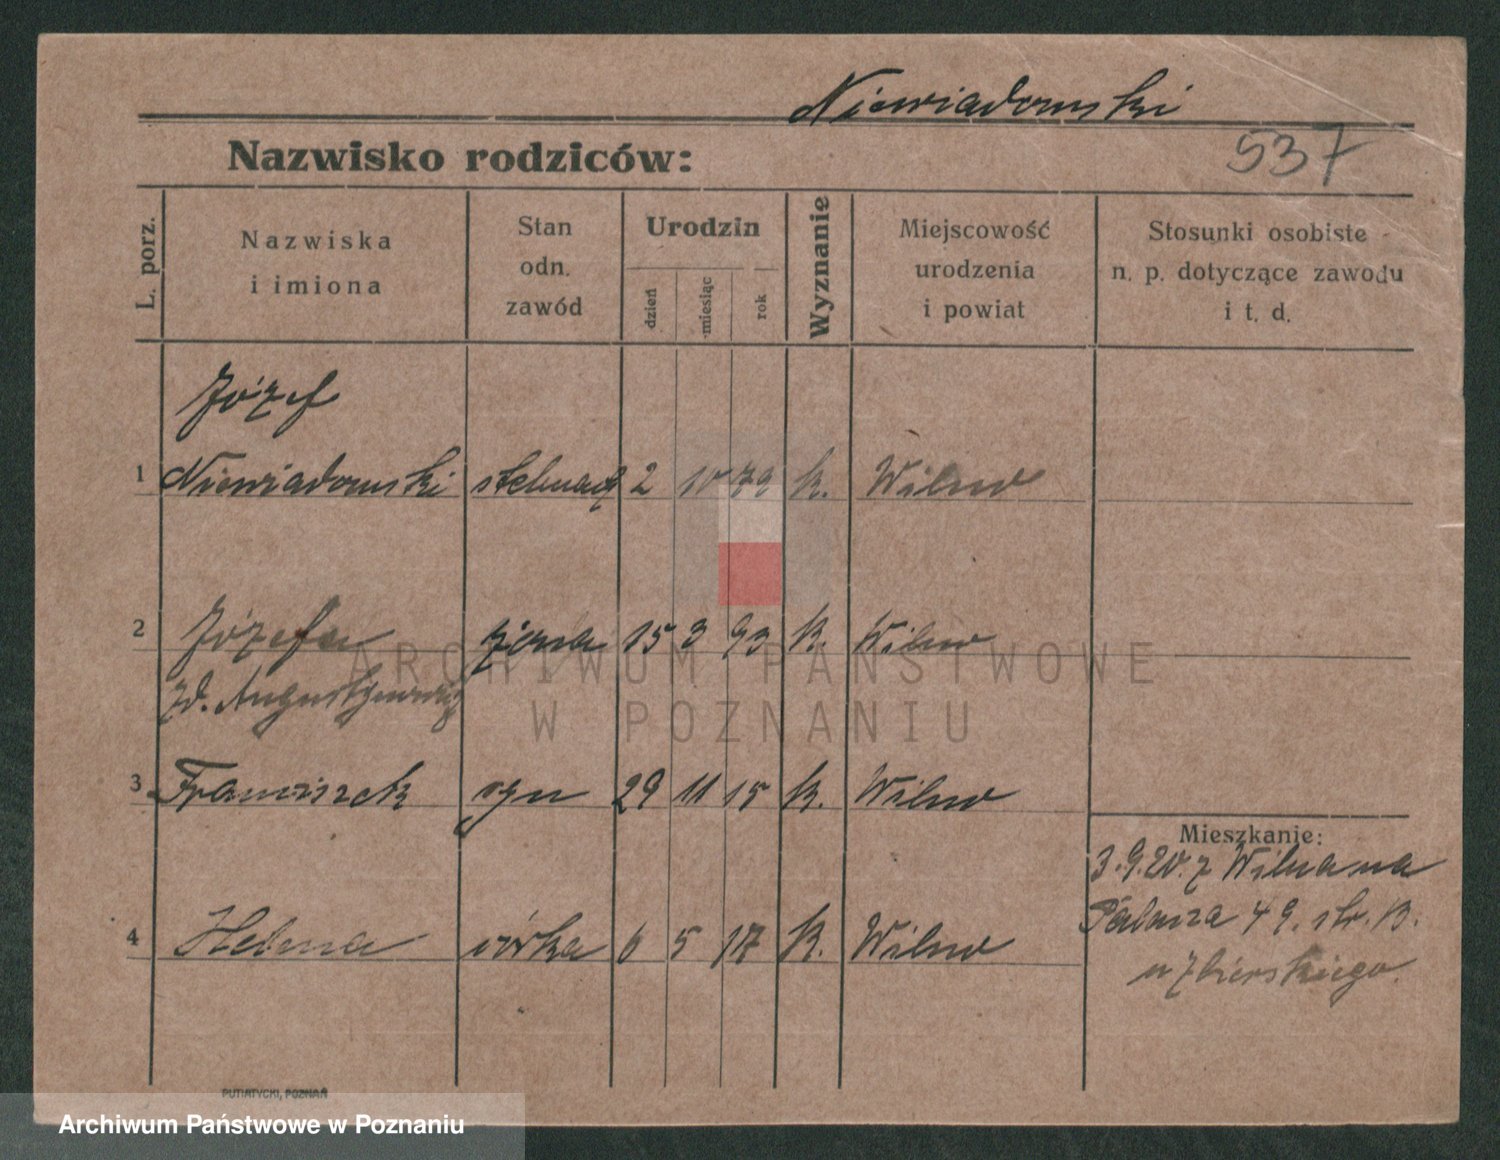 Niewiadomski
537
Nazwisko rodziców:
L. porz.
Nazwiska
i imiona
Stan
odn.
zawód
Urodzin
dzień
miesiąc
rok
Wyznanie
Miejscowość
urodzenia
i powiat
Stosunki osobiste
n. p. dotyczące zawodu
i t. d.
Józef
1 Niewiadomski stelmach 2 10 79 k. Wilno
2 Józefa żona 15 3 93 k. Wilno
zd. Augustynowicz
3 Franciszek syn 29 11 15 k. Wilno
4 Helena córka 6 5 17 k. Wilno
Mieszkanie:
3.9.20. z Wilna na
49. str. B.
u Zbierskiego.
PUTIATYCKI, POZNAŃ
ARCHIWUM PAŃSTWOWE
W POZNANIU
Archiwum Państwowe w Poznaniu